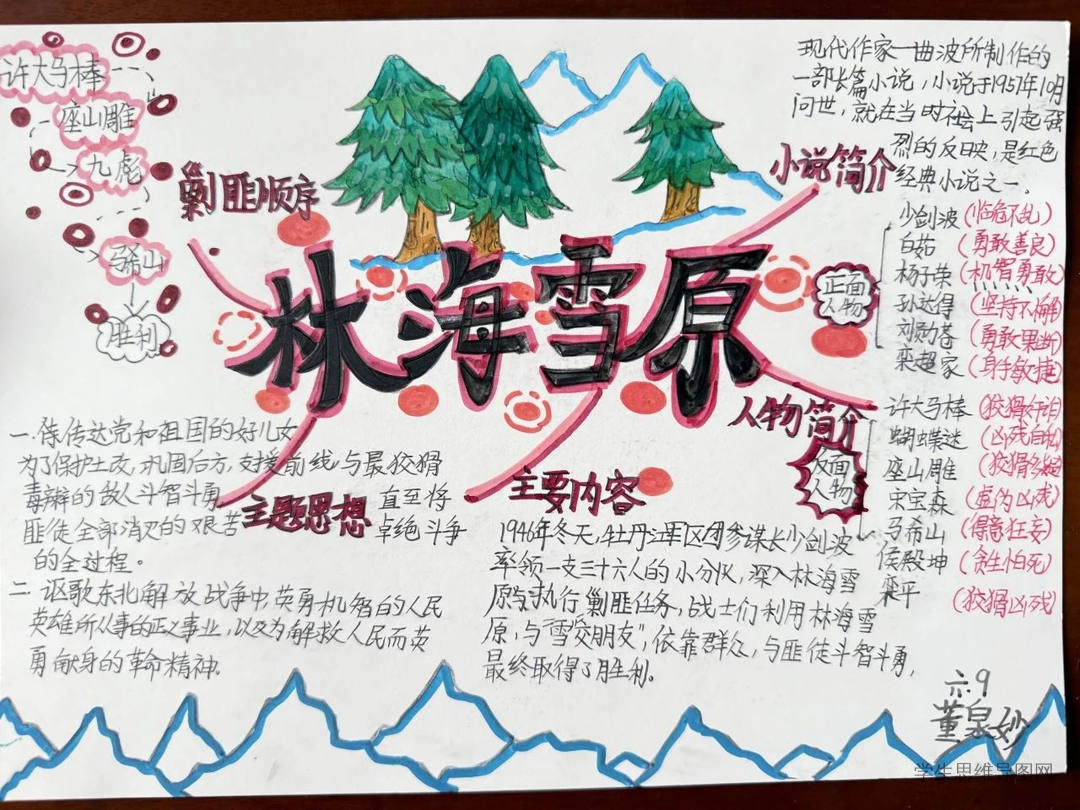 林海雪原
剿匪顺序
许大马棒
座山雕
九彪
马希山
胜利
小说简介
现代作家一曲波所制作的
一部长篇小说,小说于1957年10月
问世,就在当时社会上引起强
烈的反映,是红色
经典小说之一。
人物简介
正面
人物
少剑波(临危不乱)
白茹(勇敢善良)
杨子荣(机智勇敢)
孙达得(坚持不懈)
刘勋苍(勇敢果断)
栾超家(身手敏捷)
反面
人物
许大马棒(狡猾奸诈)
蝴蝶迷(凶残自私)
座山雕(狡猾多疑)
宋宝森(虚伪凶残)
马希山(得意狂妄)
侯殿坤(贪生怕死)
栾平(狡猾凶残)
主题思想
一.传达党和祖国的好儿女
为了保护土改,巩固后方,支援前线,与最狡猾
毒辣的敌人斗智斗勇直至将
匪徒全部消灭的艰苦卓绝斗争
的全过程。
二 讴歌东北解放战争中英勇机智的人民
英雄所从事的正义事业,以及为解救人民而英
勇献身的革命精神.
主要内容
1946年冬天,牡丹江军区团参谋长少剑波
率领一支三十六人的小分队,深入林海雪
原执行剿匪任务,战士们利用林海雪
原,与"雪"交朋友",依靠群众,与匪徒斗智斗勇,
最终取得了胜利。
六.9
董泉妙
学生思维导图网